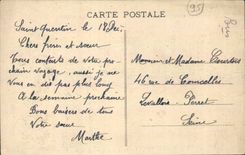 CARTE POSTALE
95
Saint Quentin le 18
Chers frères et sœur
Vous contents de votre prochain
voyage, aussi je ne
vous en dis pas plus long
A la semaine prochaine
Bons baisers de tous
Votre sœur
Marthe
Monsieur et Madame
46 rue de Courcelles
Levallois-Perret
Seine